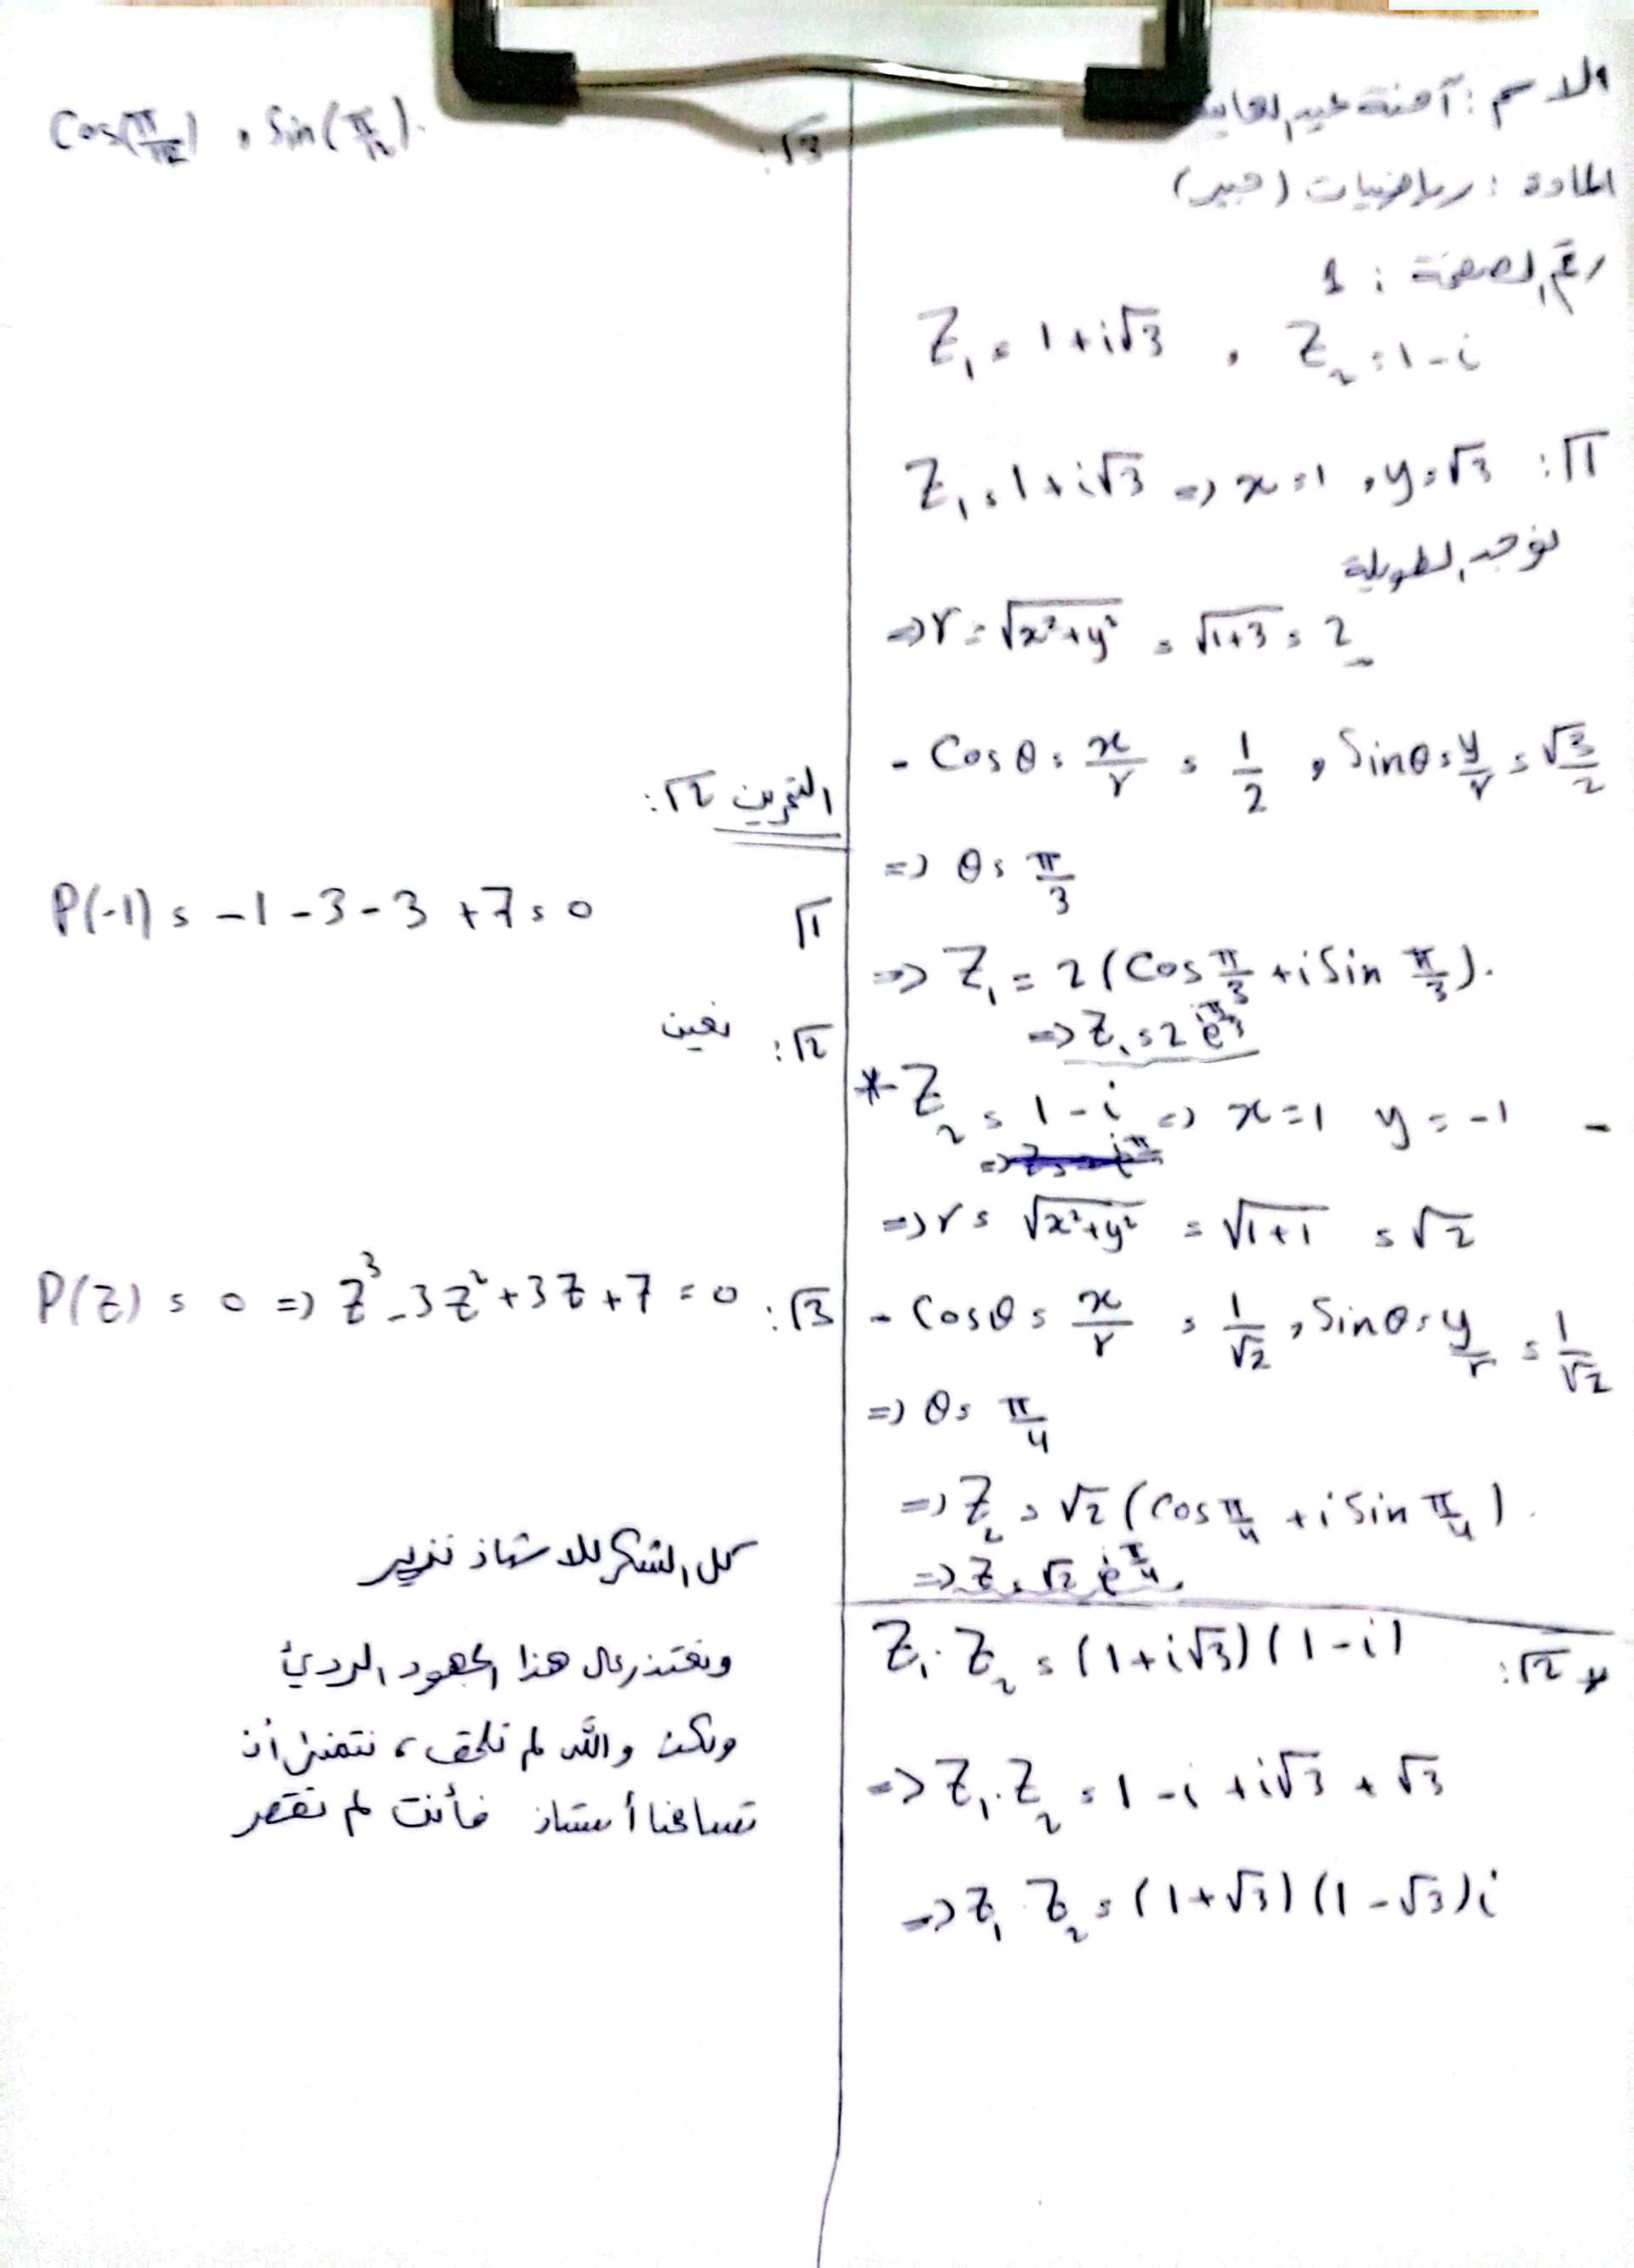 الاسم : آمنة
المادة : رياضيات (جبر)
رقم الصفحة : 1
Z₁ = 1 + i√3 , Z₂ = 1 - i
1: Z₁ = 1 + i√3 => x = 1 , y = √3
نوجد الطويلة
=> r = √(x² + y²) = √(1+3) = 2
- Cos θ = x/r = 1/2 , Sin θ = y/r = √3/2
=> θ = π/3
=> Z₁ = 2 (Cos π/3 + i Sin π/3).
=> Z₁ = 2 e^(iπ/3)
*- Z₂ = 1 - i => x = 1 y = -1 -
=> r = √(x² + y²) = √(1+1) = √2
- Cos θ = x/r = 1/√2 , Sin θ = y/r = 1/√2
=> θ = π/4
=> Z₂ = √2 (Cos π/4 + i Sin π/4).
=> Z = √2 e^(iπ/4).
* 2: Z₁ . Z₂ = (1 + i√3) (1 - i)
=> Z₁ . Z₂ = 1 - i + i√3 + √3
=> Z₁ . Z₂ = (1 + √3) (1 - √3) i
3: Cos(π/12) , Sin(π/12).
التمرين 2:
1 P(-1) = -1 - 3 - 3 + 7 = 0
2: نعين
3: P(Z) = 0 => Z³ - 3Z² + 3Z + 7 = 0
كل الشكر للاستاذ نذير
ونعتذر على هذا الجهود الرديئ
ولكن والله لم نلحق ، نتمنى أن
تسامحنا أستاذ فأنت لم تقصر